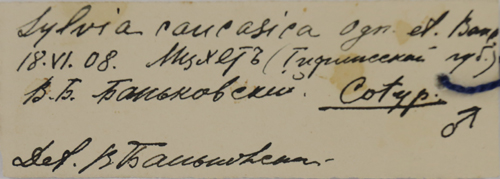 Sylvia caucasica Ogn. et. Bank
18.VI.08. Мцхетъ (Тифлисской губ.)
В.Б. Баньковский. Cotyp.
♂
Det. В Баньковский